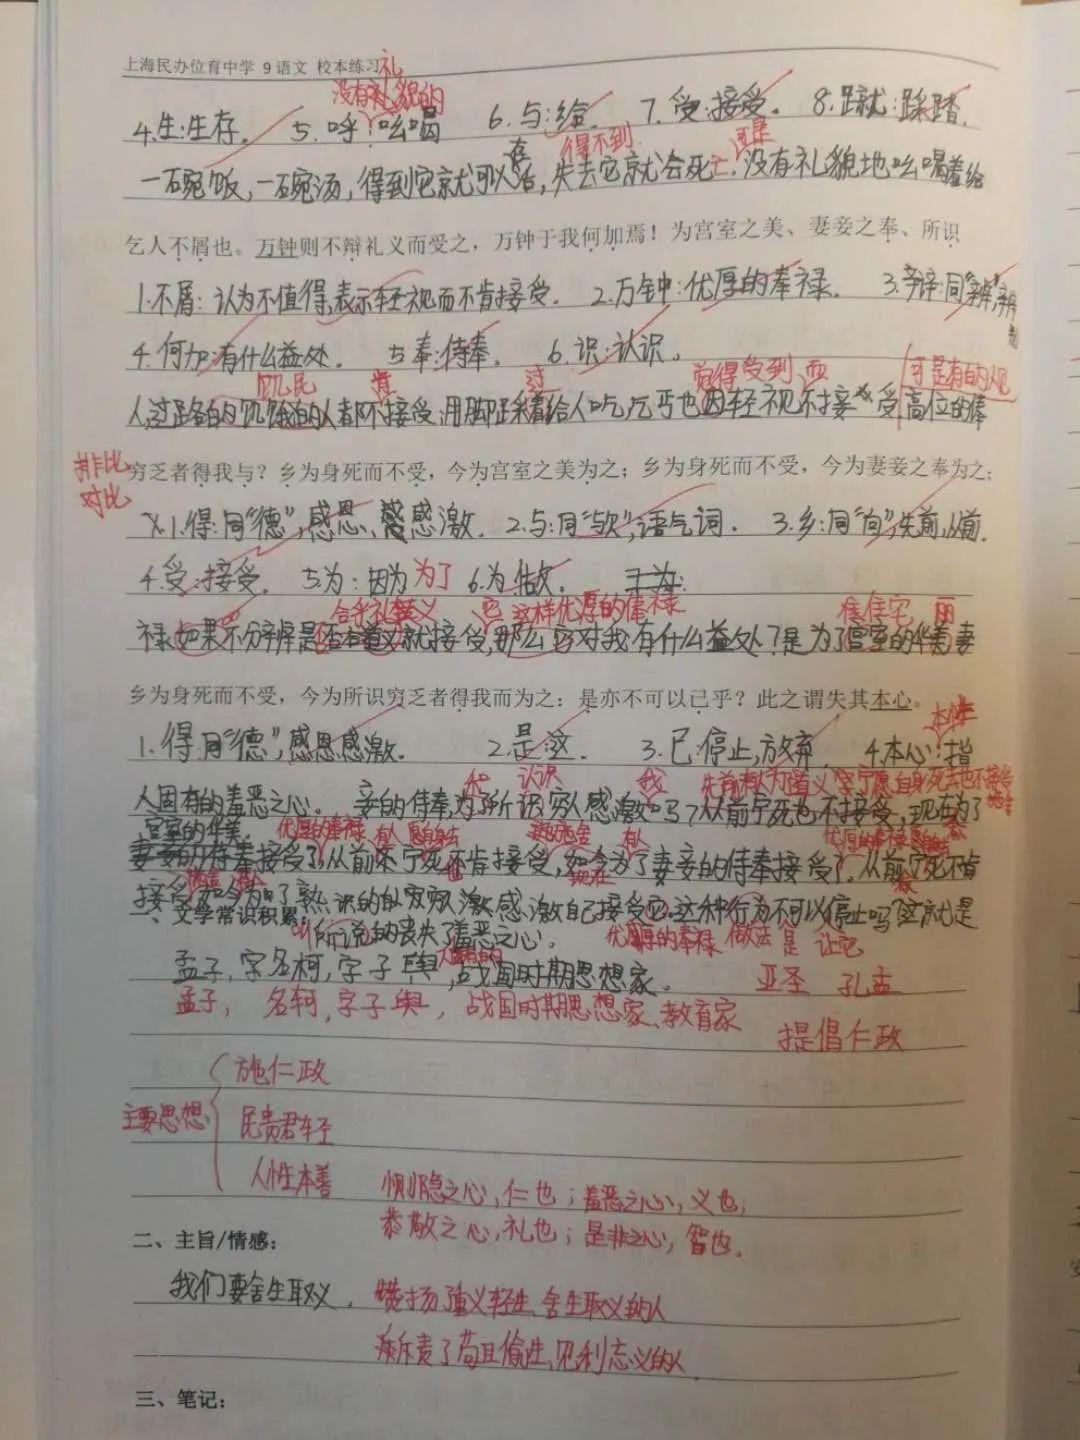 上海民办位育中学 9 语文 校本练习
礼
没有礼貌的
4.生:生存. 5.呼:吆喝 6.与:给. 7.受:接受. 8.蹴:踩踏.
存 得不到 可是
一碗饭,一碗汤,得到它就可以活,失去它就会死亡.没有礼貌地吆喝着给
乞人不屑也。万钟则不辩礼义而受之，万钟于我何加焉！为宫室之美、妻妾之奉、所识
1.不屑:认为不值得,表示轻视而不肯接受. 2.万钟:优厚的奉禄. 3.辩:同“辨”,辨
4.何加:有什么益处. 5.奉:侍奉. 6.识:认识.
饥民 肯 过 觉得受到 而 可是有的人见
人,过路的饥饿的人都不接受,用脚踩着给人吃,乞丐也因轻视不接受,高位的俸
排比
对比
穷乏者得我与？乡为身死而不受，今为宫室之美为之；乡为身死而不受，今为妻妾之奉为之；
1.得:同“德”,感恩、感激. 2.与:同“欤”,语气词. 3.乡:同“向”,先前,从前.
4.受:接受. 5.为:因为 为了 6.为:做.
合乎礼义 这样优厚的俸禄 住宅 丽
禄如果不分辨是否本道义就接受,那么对我有什么益处?是为了宫室的华美,妻
乡为身死而不受，今为所识穷乏者得我而为之：是亦不可以已乎？此之谓失其本心。
本性
1.得:同“德”,感恩感激. 2.是:这. 3.已:停止,放弃 4.本心:指
和 认识 我 先前有人为道义 宁愿自身死去也不接受
人固有的羞恶之心. 妾的侍奉,为了所识穷人感激吗?从前宁死也不接受,现在为了
宫室的华美
优厚的奉禄 有人
妻妾的侍奉接受了,从前宁死不肯接受,如今为了妻妾的侍奉接受了.从前宁死不肯
接受,如今为了熟识的穷激感激自己接受它.这种行为不可以停止吗?这就是
一、文学常识积累:
所说的丧失了羞恶之心. 优厚的奉禄 做法 是 让它
孟子,字名柯,字子舆,战国时期思想家. 亚圣 孔孟
孟子, 名轲,字子舆, 战国时期思想家、教育家
提倡仁政
施仁政
主要思想 民贵君轻
人性本善 恻隐之心,仁也;羞恶之心,义也;
恭敬之心,礼也;是非之心,智也.
二、主旨/情感：
我们要舍生取义. 赞扬了重义轻生、舍生取义的人
斥责了苟且偷生,见利忘义的人
三、笔记：